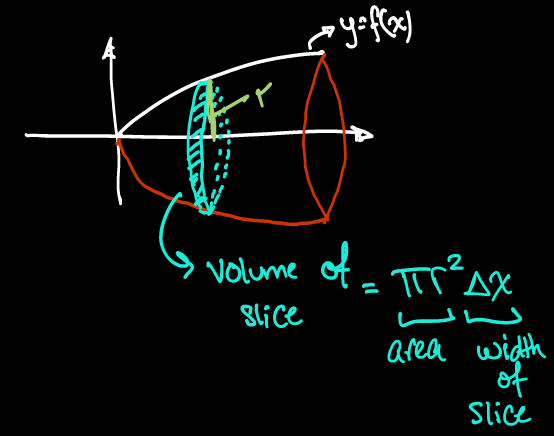 y=f(x)
r
volume of
slice
= πr² Δx
area width
of
slice